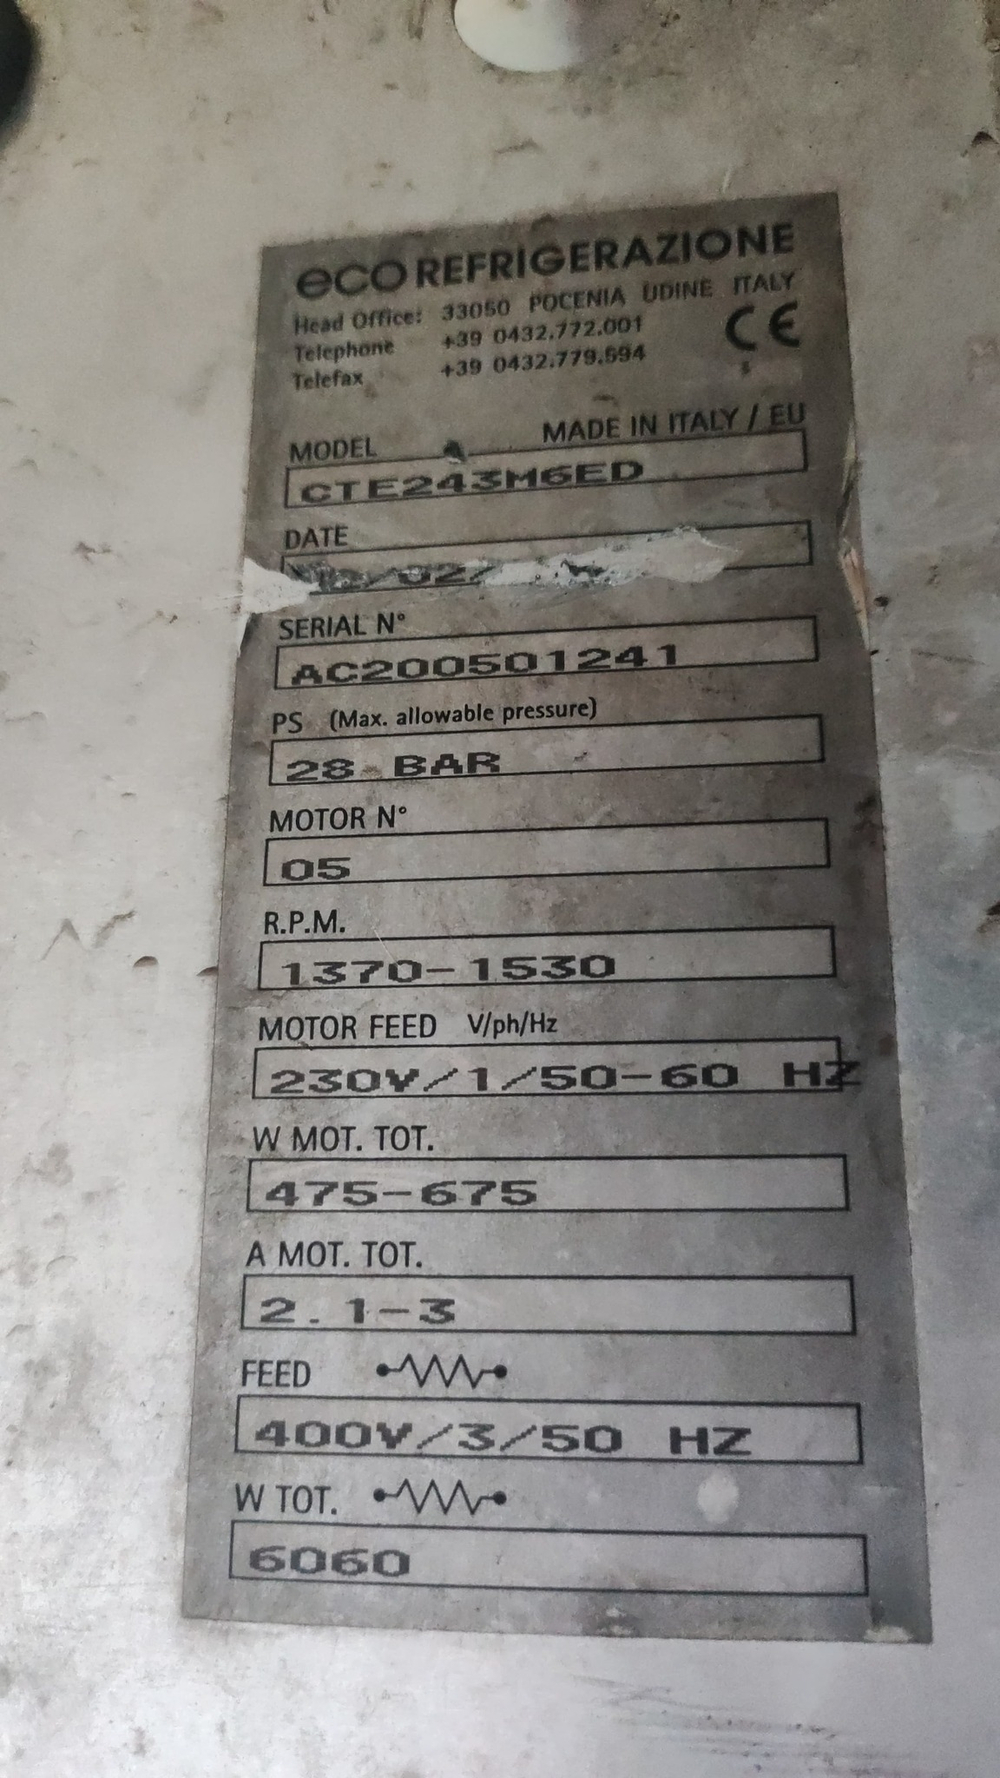 eco REFRIGERAZIONE
Head Office: 33050 POCENIA UDINE ITALY
Telephone +39 0432.772.001
Telefax +39 0432.779.594
CE
MODEL MADE IN ITALY / EU
CTE243M6ED
DATE
SERIAL N°
AC200501241
PS (Max. allowable pressure)
28 BAR
MOTOR N°
05
R.P.M.
1370-1530
MOTOR FEED V/ph/Hz
230V/1/50-60 HZ
W MOT. TOT.
475-675
A MOT. TOT.
2.1-3
FEED
400V/3/50 HZ
W TOT.
6060